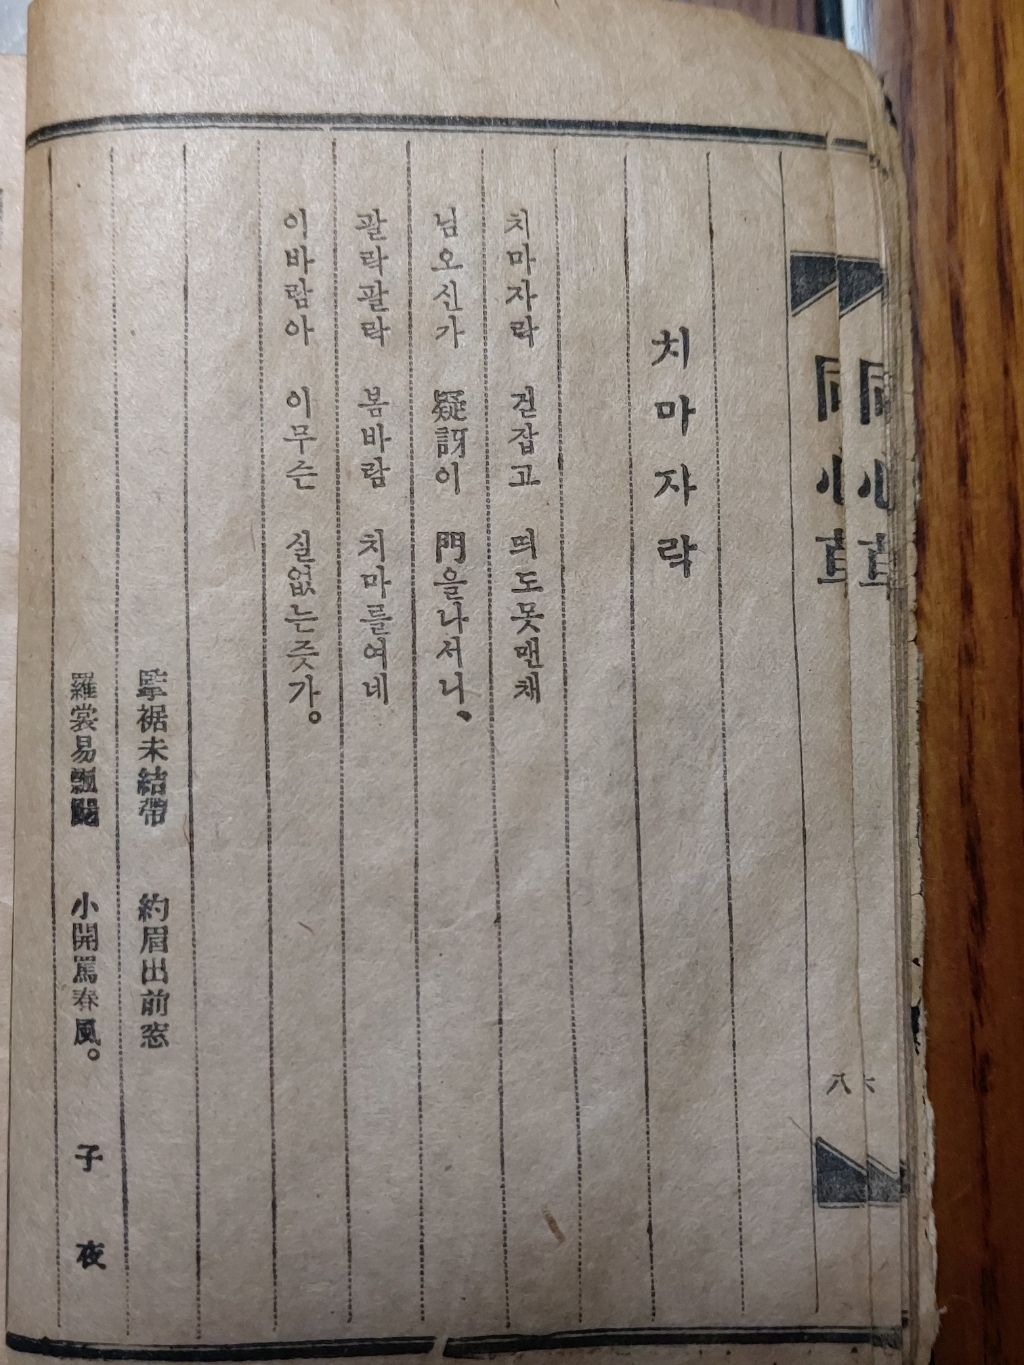 同心草
八
同心草
六
치마자락
치마자락 걷잡고 띄도못맨채
님오신가 疑訝이 門을나서니、
팔락팔락 봄바람 치마를여네
이바람아 이무슨 실없는즛가。
擥裾未結帶 約眉出前窓
羅裳易飄颺 小開罵春風。 子夜